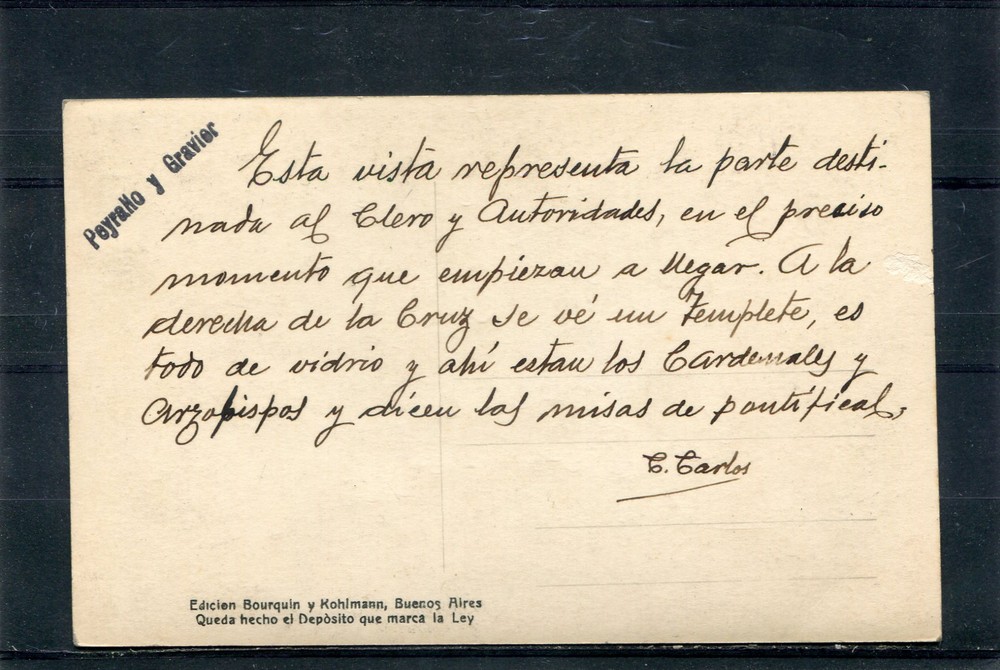 Peyrallo y Gravier
Esta vista representa la parte desti-
nada al Clero y Autoridades, en el preciso
momento que empiezan a llegar. A la
derecha de la Cruz se vé un Templete, es
todo de vidrio y ahí estan los Cardenales y
Arzobispos y dicen las misas de pontifical,
C. Carlos
Edicion Bourquin y Kohlmann, Buenos Aires
Queda hecho el Depòsito que marca la Ley